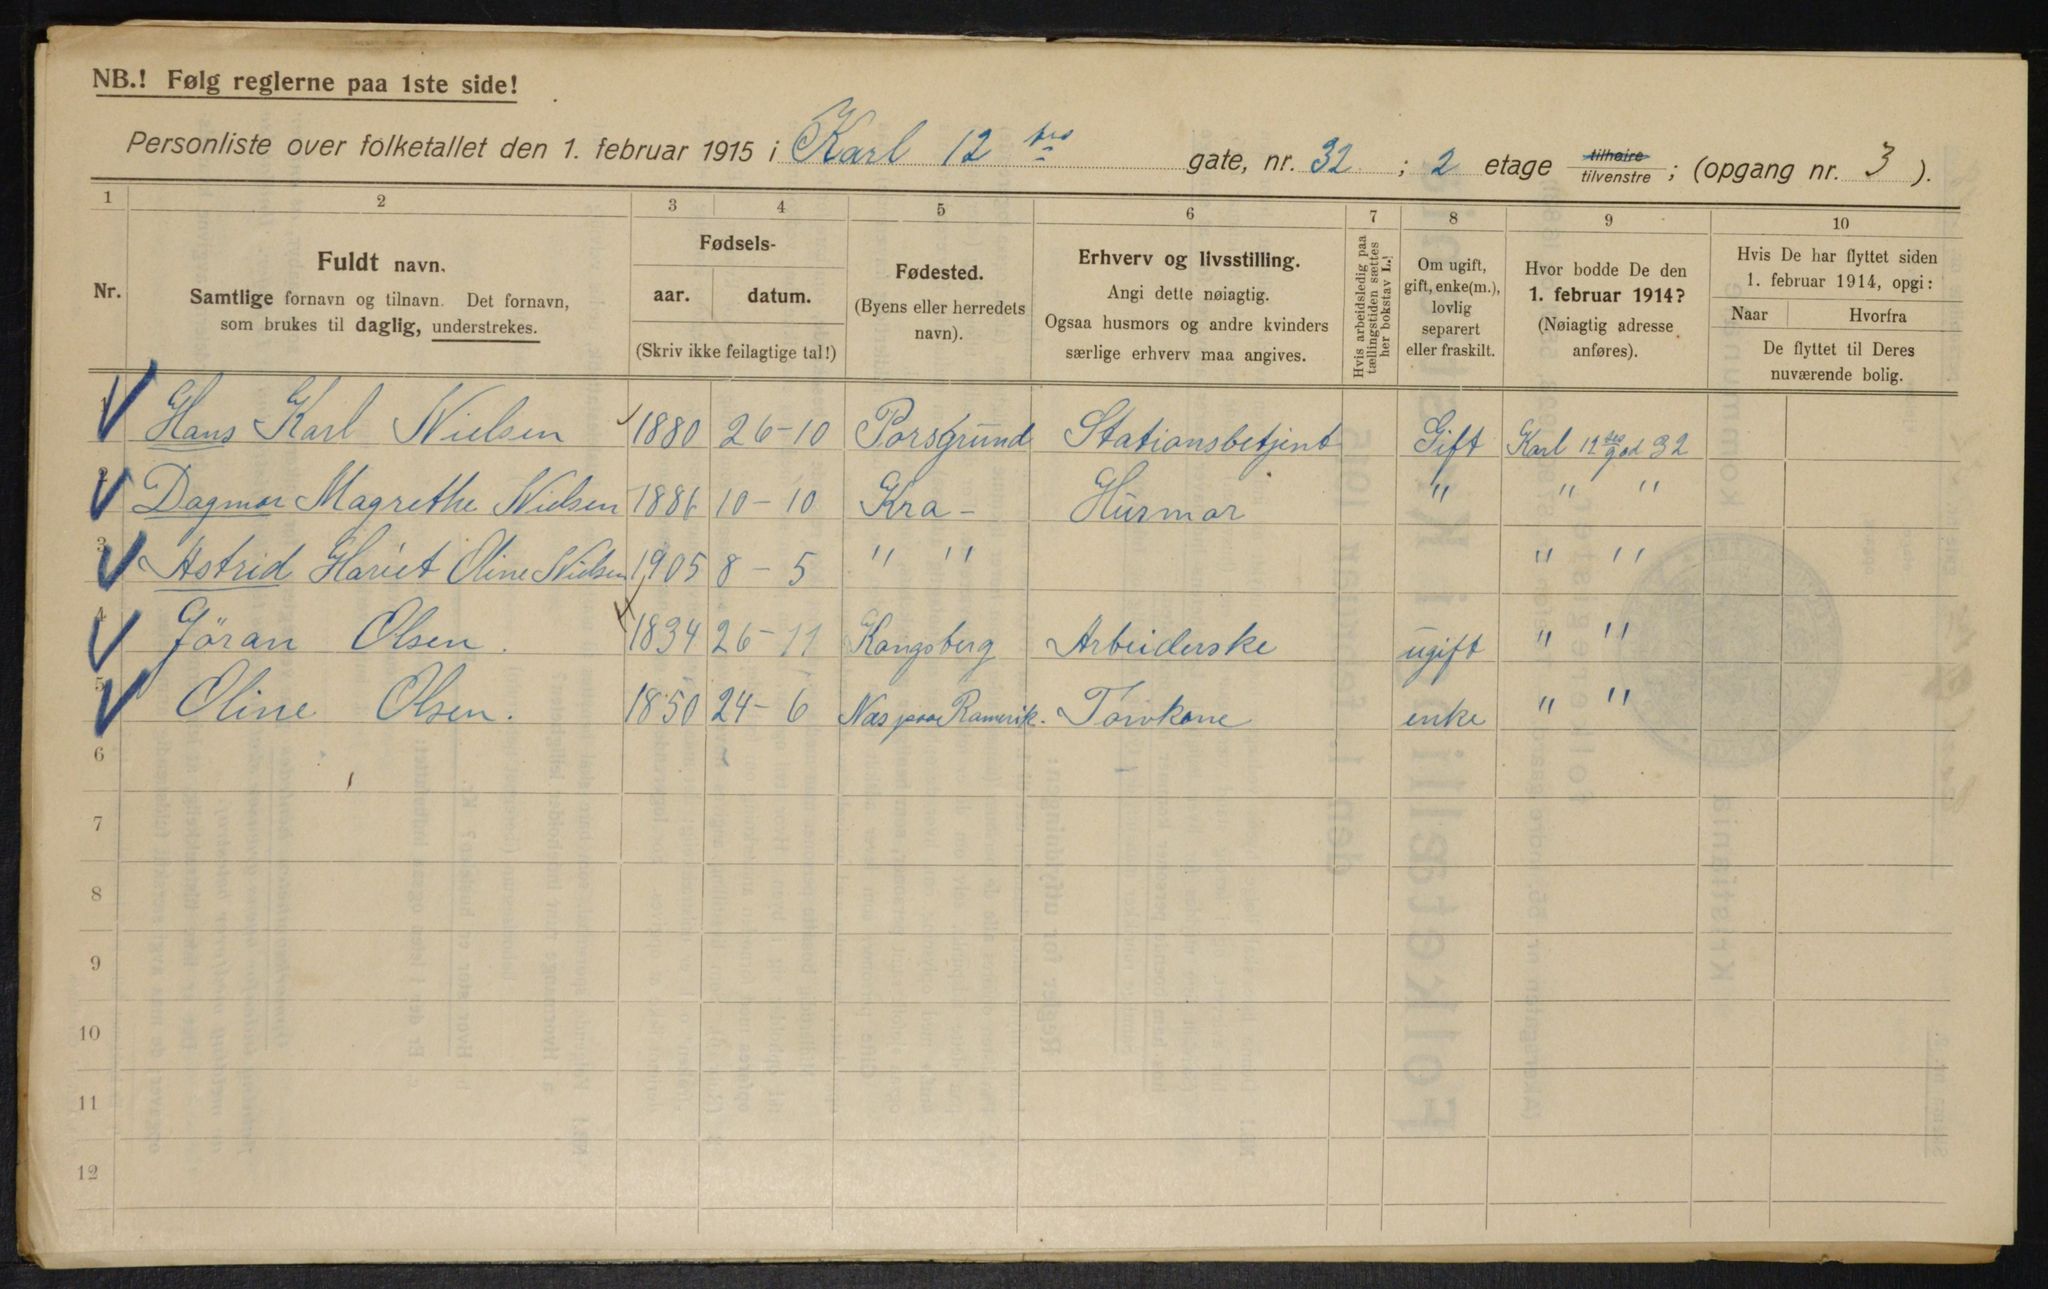 NB.! Følg reglerne paa 1ste side!
Personliste over folketallet den 1. februar 1915 i Karl 12 tes gate, nr. 32 ; 2 etage tilhøire tilvenstre ; (opgang nr. 3 ).
1 2 3 4 5 6 7 8 9 10
Nr.
Fuldt navn.
Samtlige fornavn og tilnavn. Det fornavn,
som brukes til daglig, understrekes.
Fødsels-
aar. datum.
(Skriv ikke feilagtige tal!)
Fødested.
(Byens eller herredets
navn).
Erhverv og livsstilling.
Angi dette nøiagtig.
Ogsaa husmors og andre kvinders
særlige erhverv maa angives.
Hvis arbeidsledig paa
tællingstiden sættes
her bokstav L.!
Om ugift,
gift, enke(m.),
lovlig
separert
eller fraskilt.
Hvor bodde De den
1. februar 1914?
(Nøiagtig adresse
anføres).
Hvis De har flyttet siden
1. februar 1914, opgi:
Naar Hvorfra
De flyttet til Deres
nuværende bolig.
1 Hans Karl Nielsen 1880 26-10 Porsgrund Stationsbetjent Gift Karl 12 tes gad 32
2 Dagmar Magrethe Nielsen 1886 10-10 Kra- Husmor " " "
3 Astrid Hariet Oline Nielsen 1905 8-5 " " " "
4 Jöran Olsen. 1834 26-11 Kongsberg Arbeiderske ugift " "
5 Oline Olsen. 1850 24-6 Næs paa Romerik. Torvkone enke " "
6
7
8
9
10
11
12